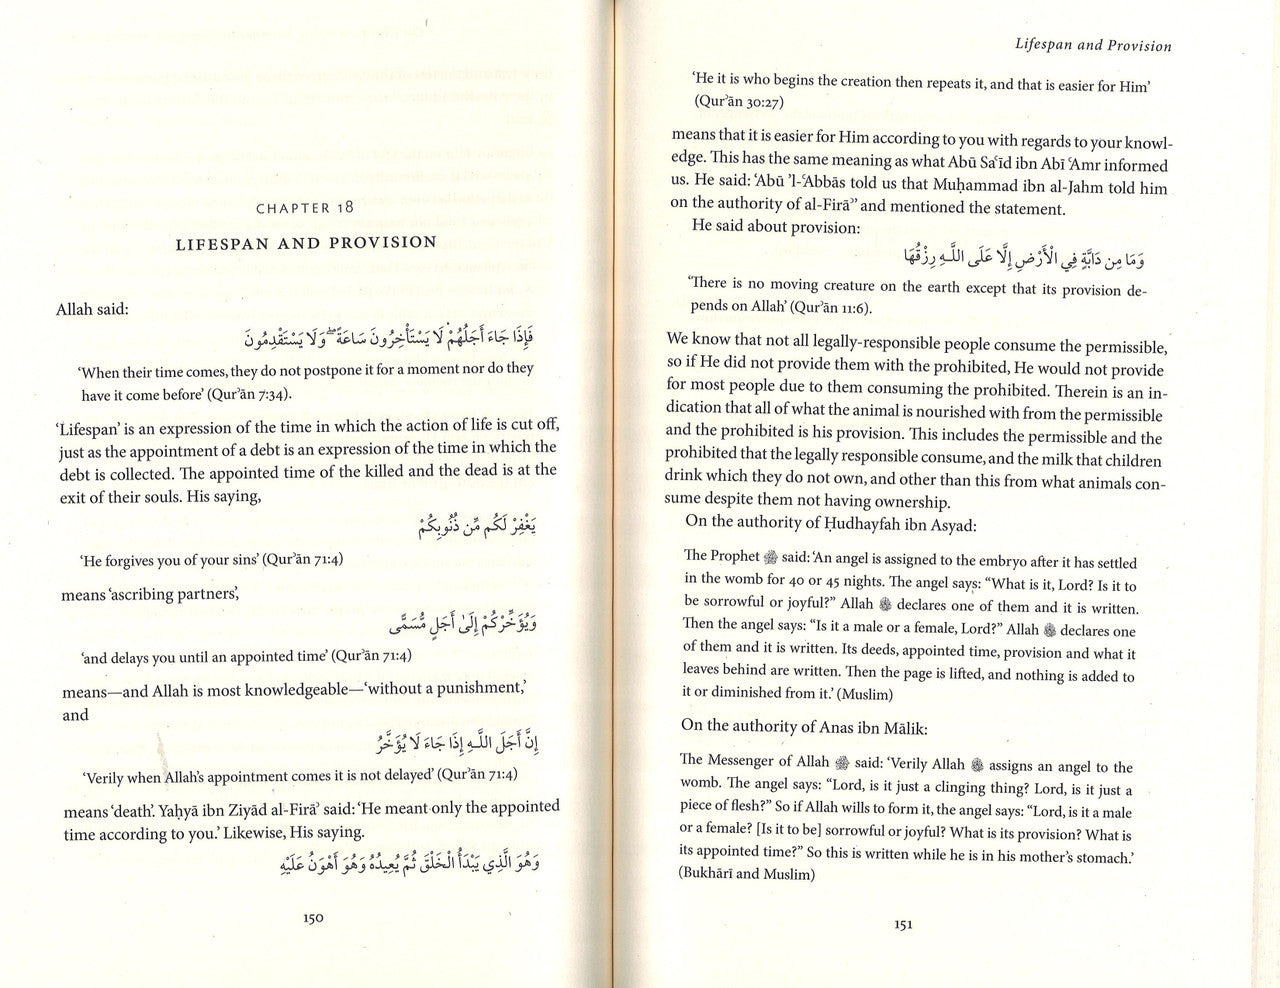 CHAPTER 18
LIFESPAN AND PROVISION
Allah said:
فَإِذَا جَاءَ أَجَلُهُمْ لَا يَسْتَأْخِرُونَ سَاعَةً ۖ وَلَا يَسْتَقْدِمُونَ
‘When their time comes, they do not postpone it for a moment nor do they
have it come before’ (Qurʾān 7:34).
‘Lifespan’ is an expression of the time in which the action of life is cut off,
just as the appointment of a debt is an expression of the time in which the
debt is collected. The appointed time of the killed and the dead is at the
exit of their souls. His saying,
يَغْفِرْ لَكُم مِّن ذُنُوبِكُمْ
‘He forgives you of your sins’ (Qurʾān 71:4)
means ‘ascribing partners’,
وَيُؤَخِّرْكُمْ إِلَىٰ أَجَلٍ مُّسَمًّى
‘and delays you until an appointed time’ (Qurʾān 71:4)
means—and Allah is most knowledgeable—‘without a punishment,’
and
إِنَّ أَجَلَ اللَّـهِ إِذَا جَاءَ لَا يُؤَخَّرُ
‘Verily when Allah’s appointment comes it is not delayed’ (Qurʾān 71:4)
means ‘death’. Yaḥyā ibn Ziyād al-Firāʾ said: ‘He meant only the appointed
time according to you.’ Likewise, His saying.
وَهُوَ الَّذِي يَبْدَأُ الْخَلْقَ ثُمَّ يُعِيدُهُ وَهُوَ أَهْوَنُ عَلَيْهِ
150
Lifespan and Provision
‘He it is who begins the creation then repeats it, and that is easier for Him’
(Qurʾān 30:27)
means that it is easier for Him according to you with regards to your knowl-
edge. This has the same meaning as what Abū Saʿīd ibn Abī ʿAmr informed
us. He said: ‘Abū ’l-ʿAbbās told us that Muḥammad ibn al-Jahm told him
on the authority of al-Firāʾ’ and mentioned the statement.
He said about provision:
وَمَا مِن دَابَّةٍ فِي الْأَرْضِ إِلَّا عَلَى اللَّـهِ رِزْقُهَا
‘There is no moving creature on the earth except that its provision de-
pends on Allah’ (Qurʾān 11:6).
We know that not all legally-responsible people consume the permissible,
so if He did not provide them with the prohibited, He would not provide
for most people due to them consuming the prohibited. Therein is an in-
dication that all of what the animal is nourished with from the permissible
and the prohibited is his provision. This includes the permissible and the
prohibited that the legally responsible consume, and the milk that children
drink which they do not own, and other than this from what animals con-
sume despite them not having ownership.
On the authority of Ḥudhayfah ibn Asyad:
The Prophet ﷺ said: ‘An angel is assigned to the embryo after it has settled
in the womb for 40 or 45 nights. The angel says: “What is it, Lord? Is it to
be sorrowful or joyful?” Allah declares one of them and it is written.
Then the angel says: “Is it a male or a female, Lord?” Allah declares one
of them and it is written. Its deeds, appointed time, provision and what it
leaves behind are written. Then the page is lifted, and nothing is added to
it or diminished from it.’ (Muslim)
On the authority of Anas ibn Mālik:
The Messenger of Allah ﷺ said: ‘Verily Allah assigns an angel to the
womb. The angel says: “Lord, is it just a clinging thing? Lord, is it just a
piece of flesh?” So if Allah wills to form it, the angel says: “Lord, is it a male
or a female? [Is it to be] sorrowful or joyful? What is its provision? What is
its appointed time?” So this is written while he is in his mother’s stomach.’
(Bukhārī and Muslim)
151